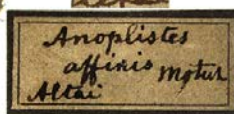 Anoplistes
affinis Motsch
Altai